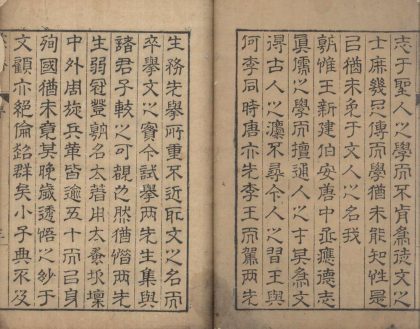 志于聖人之學而不肯為文之
士庶幾足傳而學猶未能知性是
以猶未免于文人之名我
朝惟王新建伯安唐中丞應德志
真儒之學而擅通人之才其為文
得古人之灋不尋今人之習王與
何李同時唐亦先李王而駕兩先
生務先學所重不近取文之名而
卒擧文之實今試擧兩先生集與
諸君子較之可觀已然猶惜兩先
生弱冠登朝名太著用太蚤坎壈
中外周旋兵革皆逾五十而以身
殉國猶未竟其晚歲透悟之妙于
文顧亦絕倫超群矣小子典不及